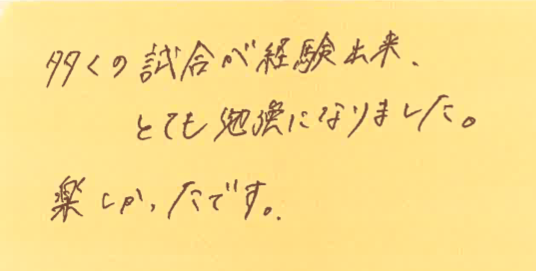 多くの試合が経験出来、
とても勉強になりました。
楽しかったです。